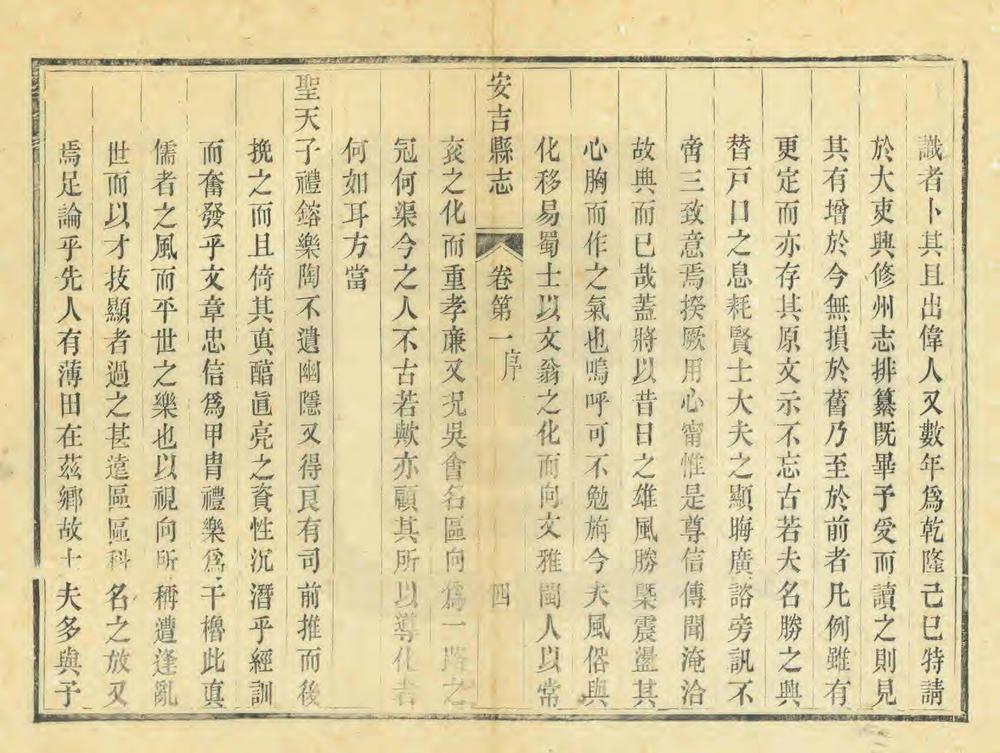 識者卜其且出偉人又數年爲乾隆己巳特請
於大吏興修州志排纂既畢予受而讀之則見
其有增於今無損於舊乃至於前者凡例雖有
更定而亦存其原文示不忘古若夫名勝之興
替戸口之息耗賢士大夫之顯晦廣諮旁訊不
啻三致意焉揆厥用心甯惟是尊信傳聞淹洽
故典而已哉蓋將以昔日之雄風勝槩震盪其
心胸而作之氣也嗚呼可不勉旃今夫風俗與
化移易蜀士以文翁之化而向文雅閩人以常
安吉縣志 卷第一 序 四
衮之化而重孝廉又况吳會名區向爲一路之
冠何渠今之人不古若歟亦顧其所以導化者
何如耳方當
聖天子禮鎔樂陶不遺幽隱又得良有司前推而後
挽之而且倚其真醕眞亮之資性沉潛乎經訓
而奮發乎文章忠信爲甲冑禮樂爲干櫓此真
儒者之風而平世之樂也以視向所稱遭逢亂
世而以才技顯者過之甚遠區區科名之放又
焉足論乎先人有薄田在茲鄉故士夫多與予